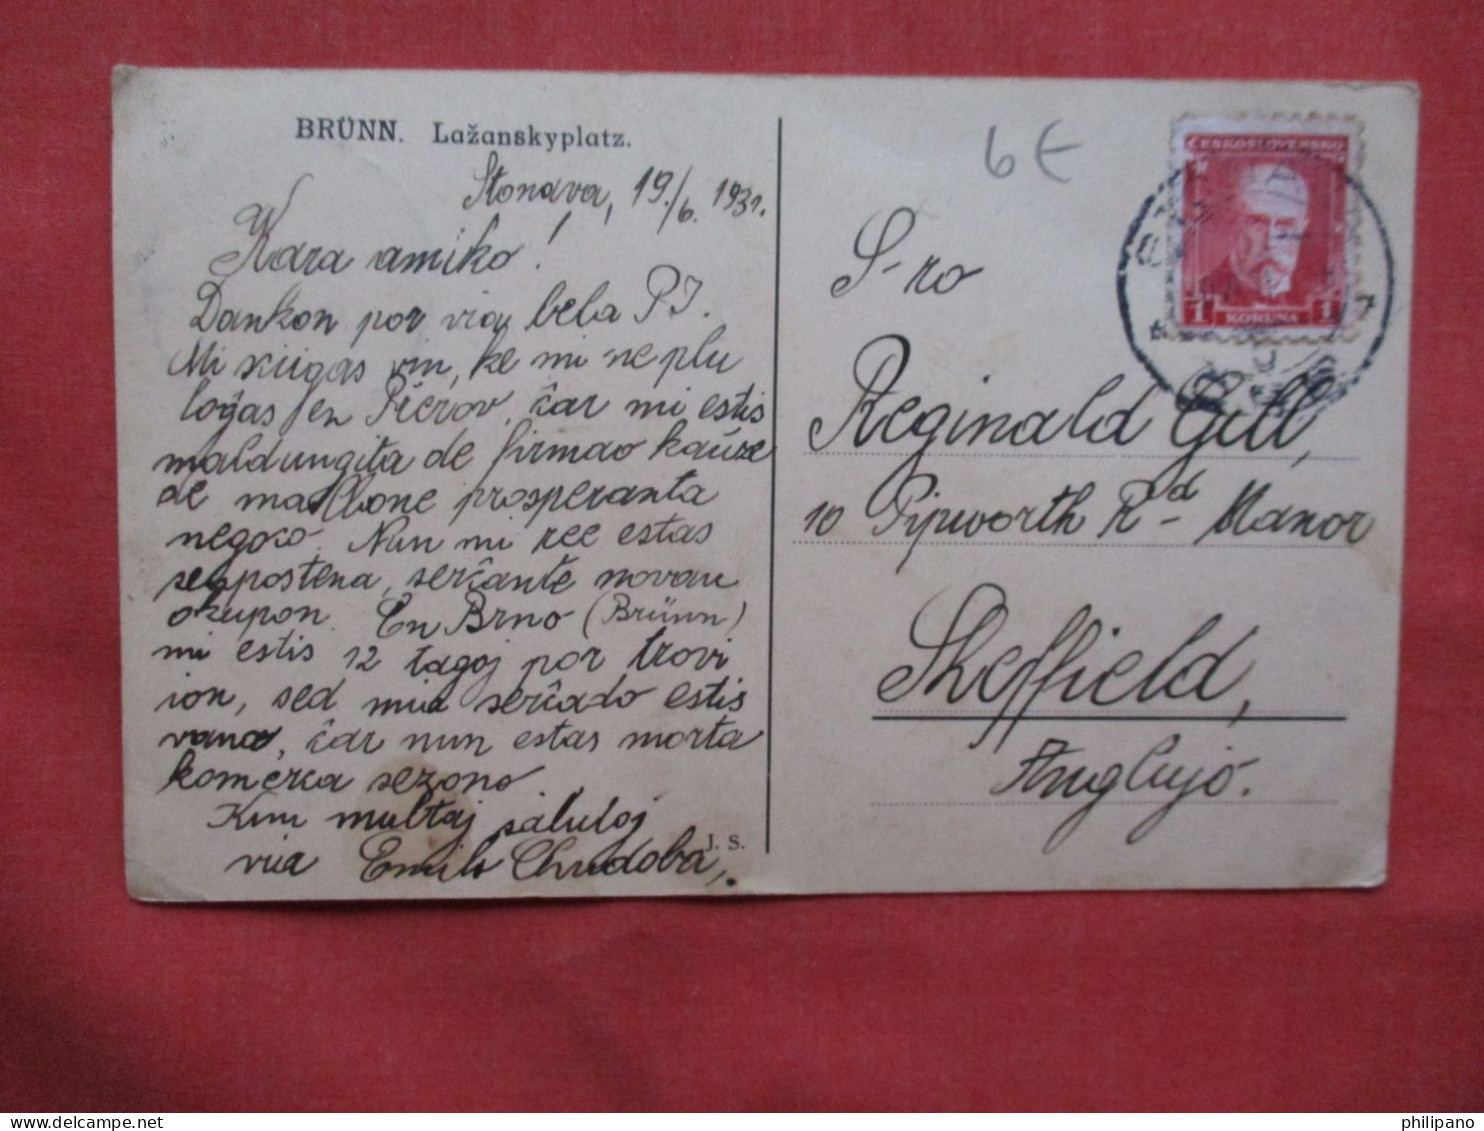 BRÜNN. Lažanskyplatz.
Stonava, 19./6. 1931.
Kara amiko!
Dankon por viaj bela P.I.
Mi sciigas vin, ke mi ne plu
loĝas en Přerov, ĉar mi estis
maldungita de firmao kaŭze
de malbone prosperanta
negoco. Nun mi ree estas
senpostena, serĉante novan
okupon. En Brno (Brünn)
mi estis 12 tagoj por trovi
ĝin, sed mia serĉado estis
vana, ĉar nun estas morta
komerca sezono.
Kun multaj salutoj
via Emilo Chudoba,
J. S.
6€
ČESKOSLOVENSKO
1 KORUNA 1
S-ro
Reginald Gill,
10 Pipworth Rd Manor
Sheffield,
Anglujo.
philipano